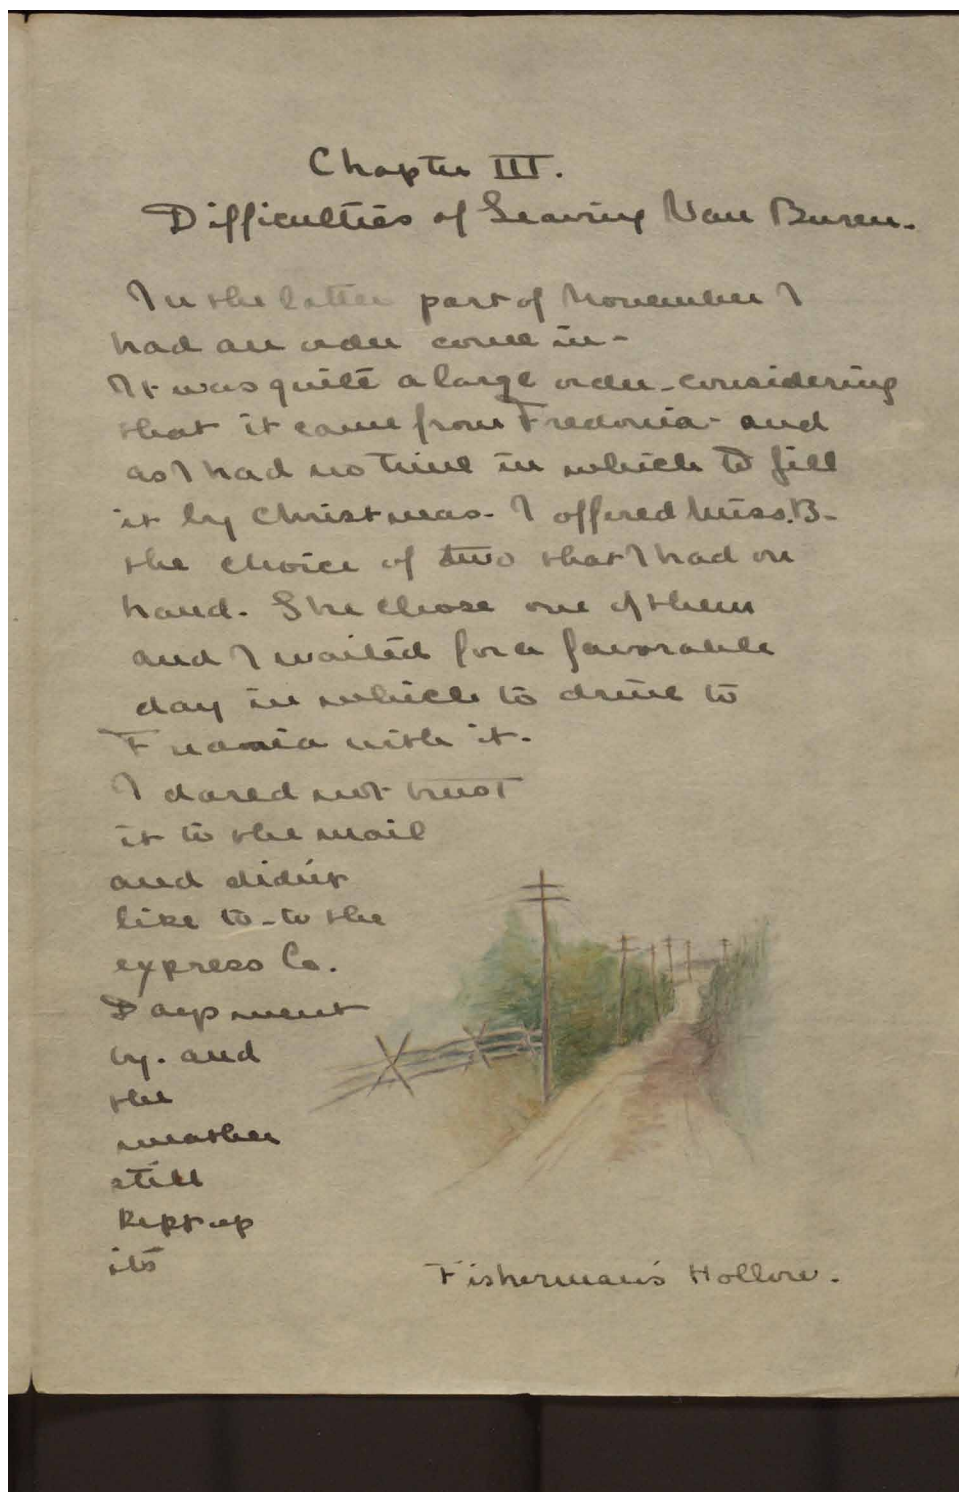 Chapter III.
Difficulties of Leaving Van Buren.
In the latter part of November I
had an order come in-
It was quite a large order-considering
that it came from Fredonia- and
as I had no time in which to fill
it by Christmas- I offered Miss. B-
the choice of two that I had on
hand. She chose one of them
and I waited for a favorable
day in which to drive to
Fredonia with it.
I dared not trust
it to the mail
and didn't
like to-to the
express Co.
Days went
by. and
the
weather
still
kept up
its
Fisherman's Hollow.